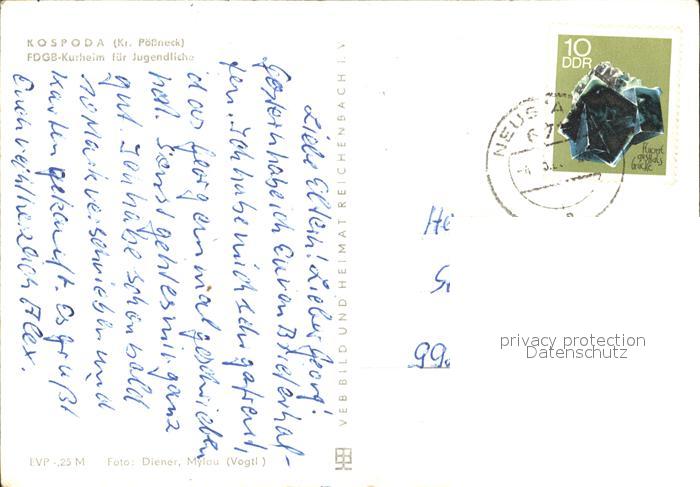 KOSPODA (Kr. Pößneck)
FDGB-Kurheim für Jugendliche
Liebe Eltern! Lieber Georg!
Gestern habe ich Euren Brief erhal-
ten. Ich habe mich sehr gefreut,
das Georg einmal geschrieben
hat. Sonst geht es mir ganz
gut. Ich habe schon bald
10 Mark verschrieben und
Karten gekauft. Es grüßt
Euch recht herzlich Alex.
EVP -,25 M Foto: Diener, Mylau (Vogtl)
VEB BILD UND HEIMAT REICHENBACH I. V
10
DDR
Fluorit
NEUSTA
He
G
99
privacy protection
Datenschutz